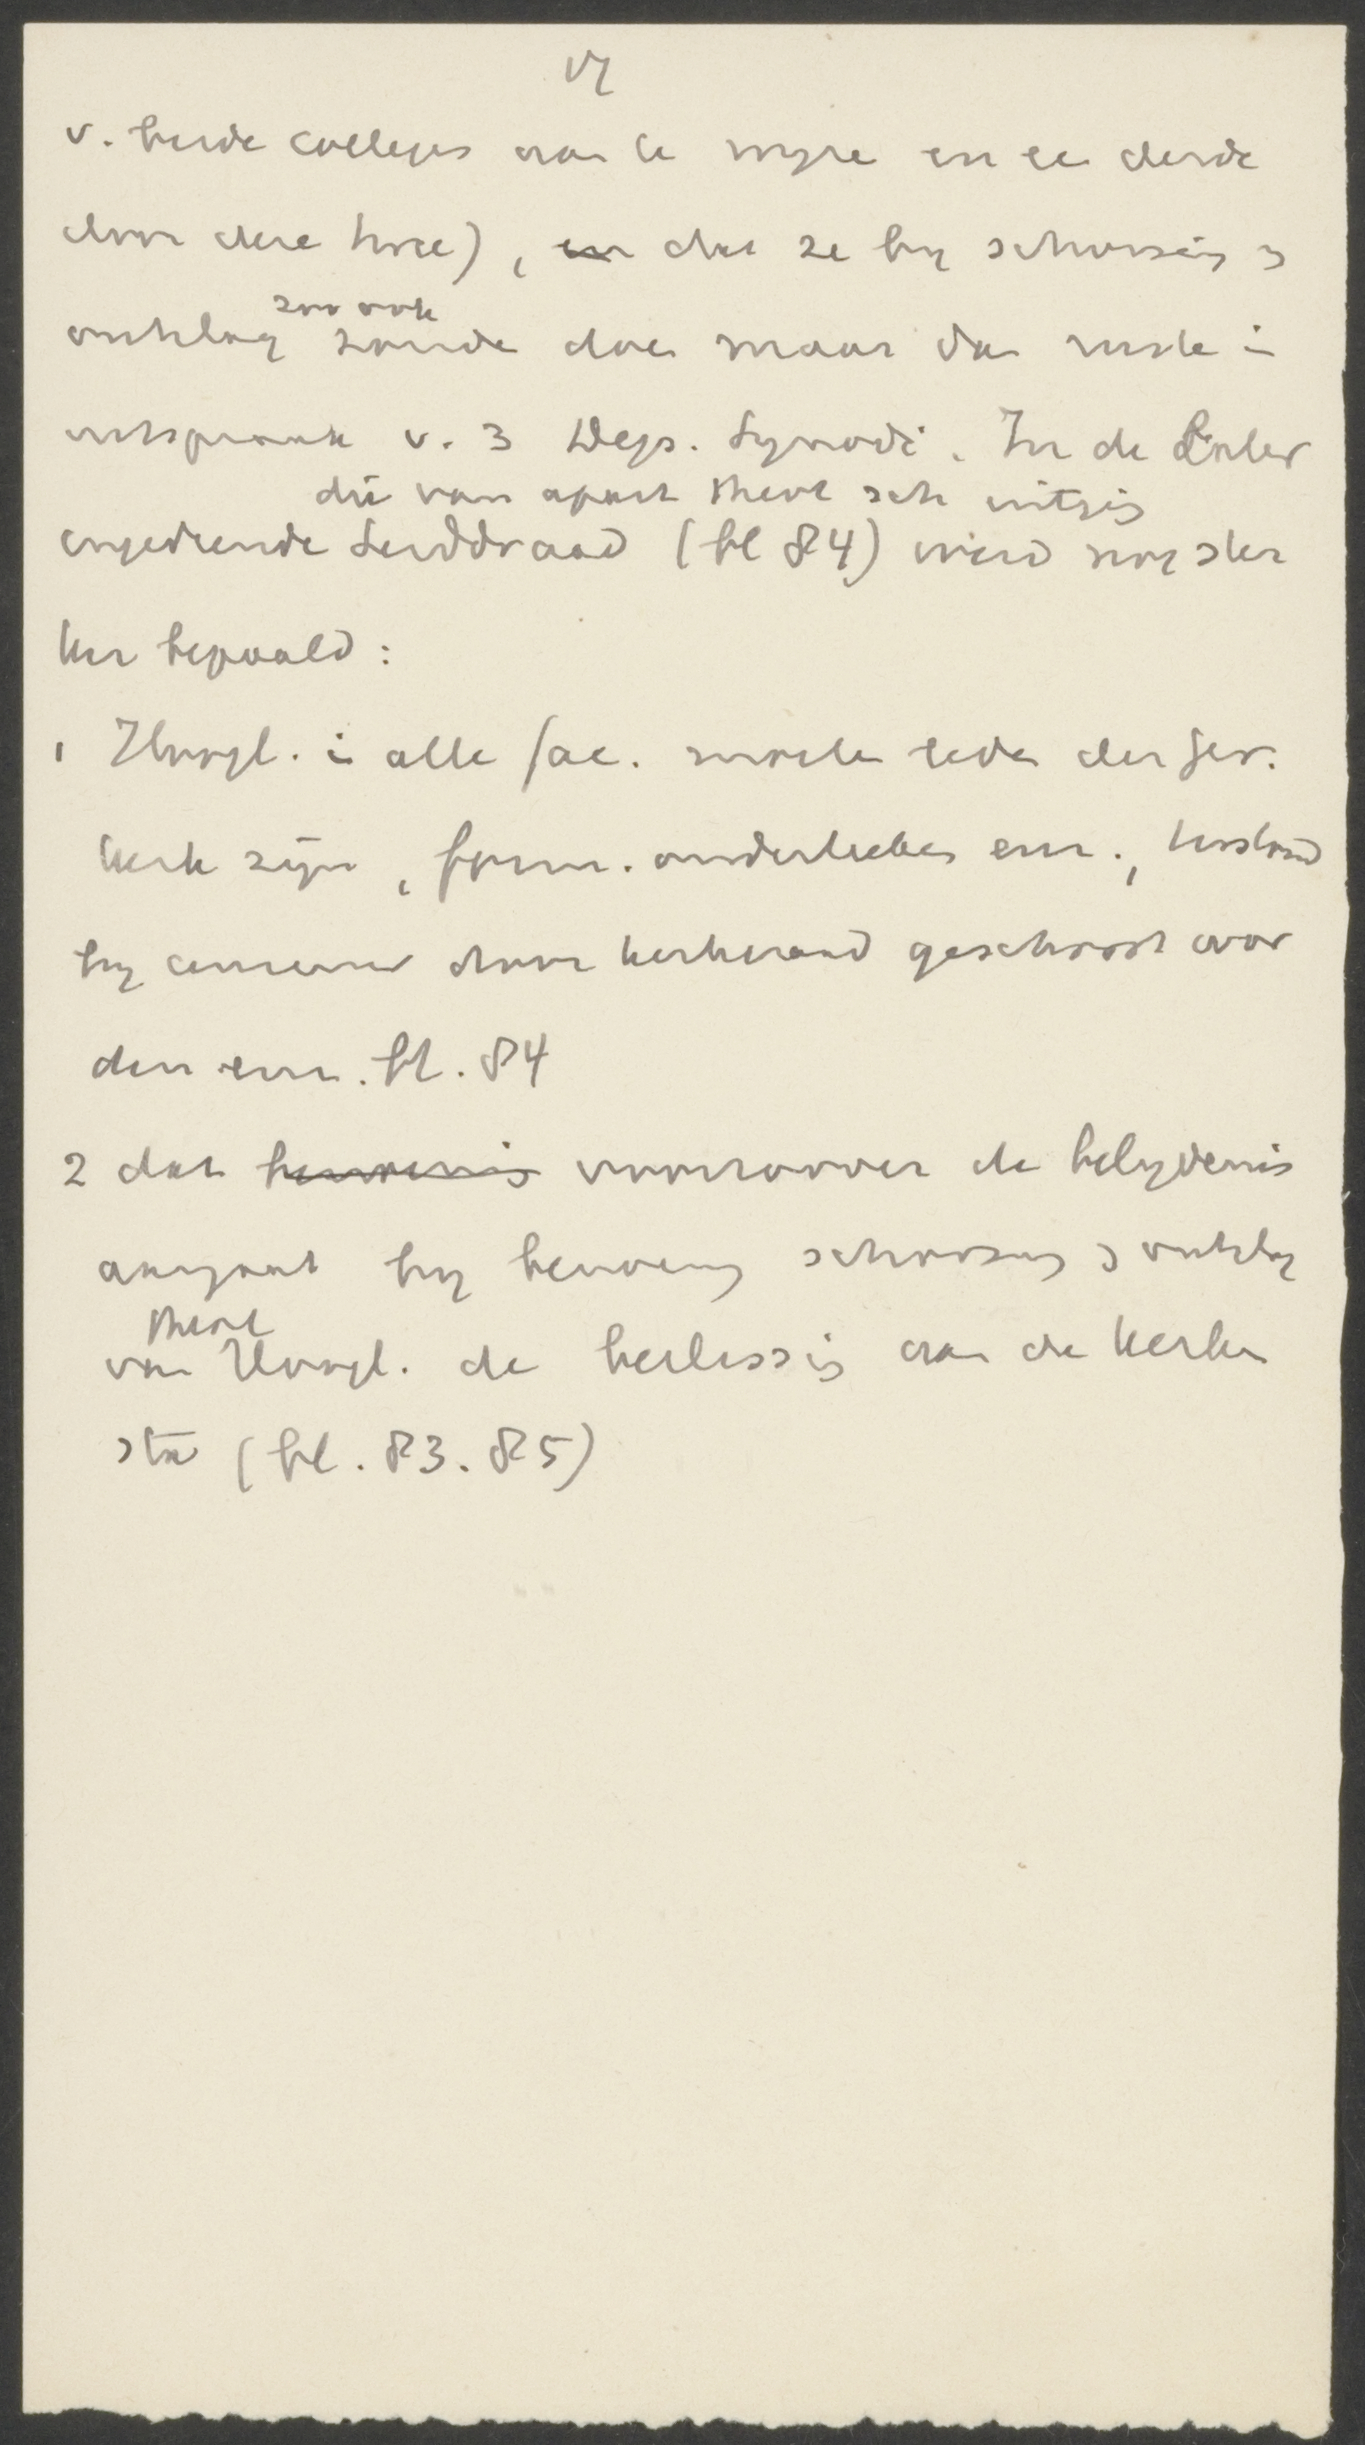 v. beide colleges aan te wijze en ee derde
door deze twee), en dat ze bij schorsing
ontslag zoo ook zoude doe maar dan naste i
uitspraak v. 3 Dep. Synodi. In de Enter
die van apart Theol sch uitging
ingediende Leiddraad (bl 84) werd nog ster
ker bepaald:
1 Hoogl. i alle fac. moete lede der Ger.
Kerk zijn, form. onderteeken enz.,
bij censuur door kerkeraad geschorst worden enz. bl. 84
2 dat voorzoover de belijdenis
aangaat bij benoeming schorsing ontslag
van Theol Hoogl. de beslissing aan de Kerken
sta (bl. 83. 85)